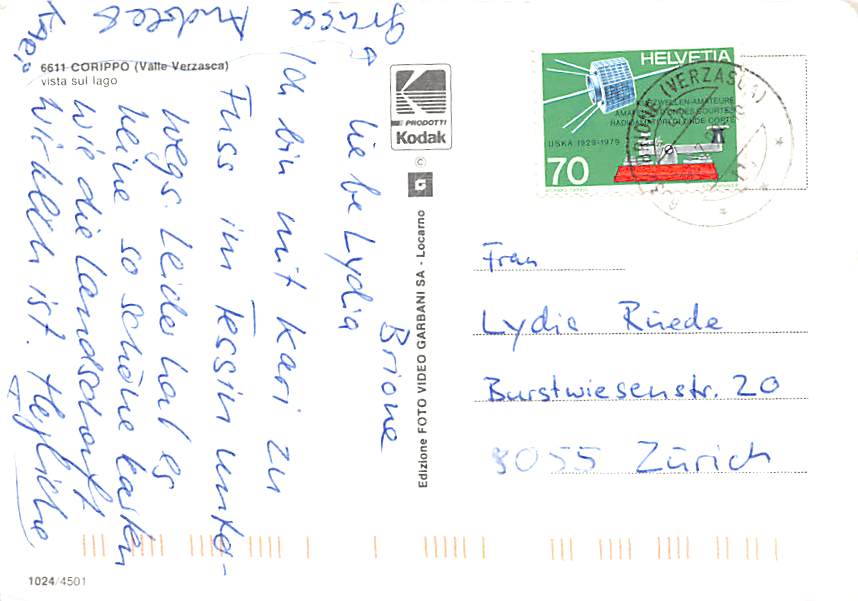 6611 CORIPPO (Valle Verzasca)
vista sul lago
Brione
Liebe Lydia
Ich bin mit Kari zu
Fuss im Tessin unter-
wegs. Leider hat es
keine so schöne Karten
wie die Landschaft
wirklich ist. Herzliche
Grüsse
PRODOTTI
Kodak
©
Edizione FOTO VIDEO GARBANI SA - Locarno
HELVETIA
KURZWELLEN-AMATEURE
AMATEURS D'ONDES COURTES
RADIOAMATORI DI ONDE CORTE
USKA 1929-1979
70
BRIONE (VERZASCA)
Frau
Lydia Rüede
Burstwiesenstr. 20
8055 Zürich
1024/4501